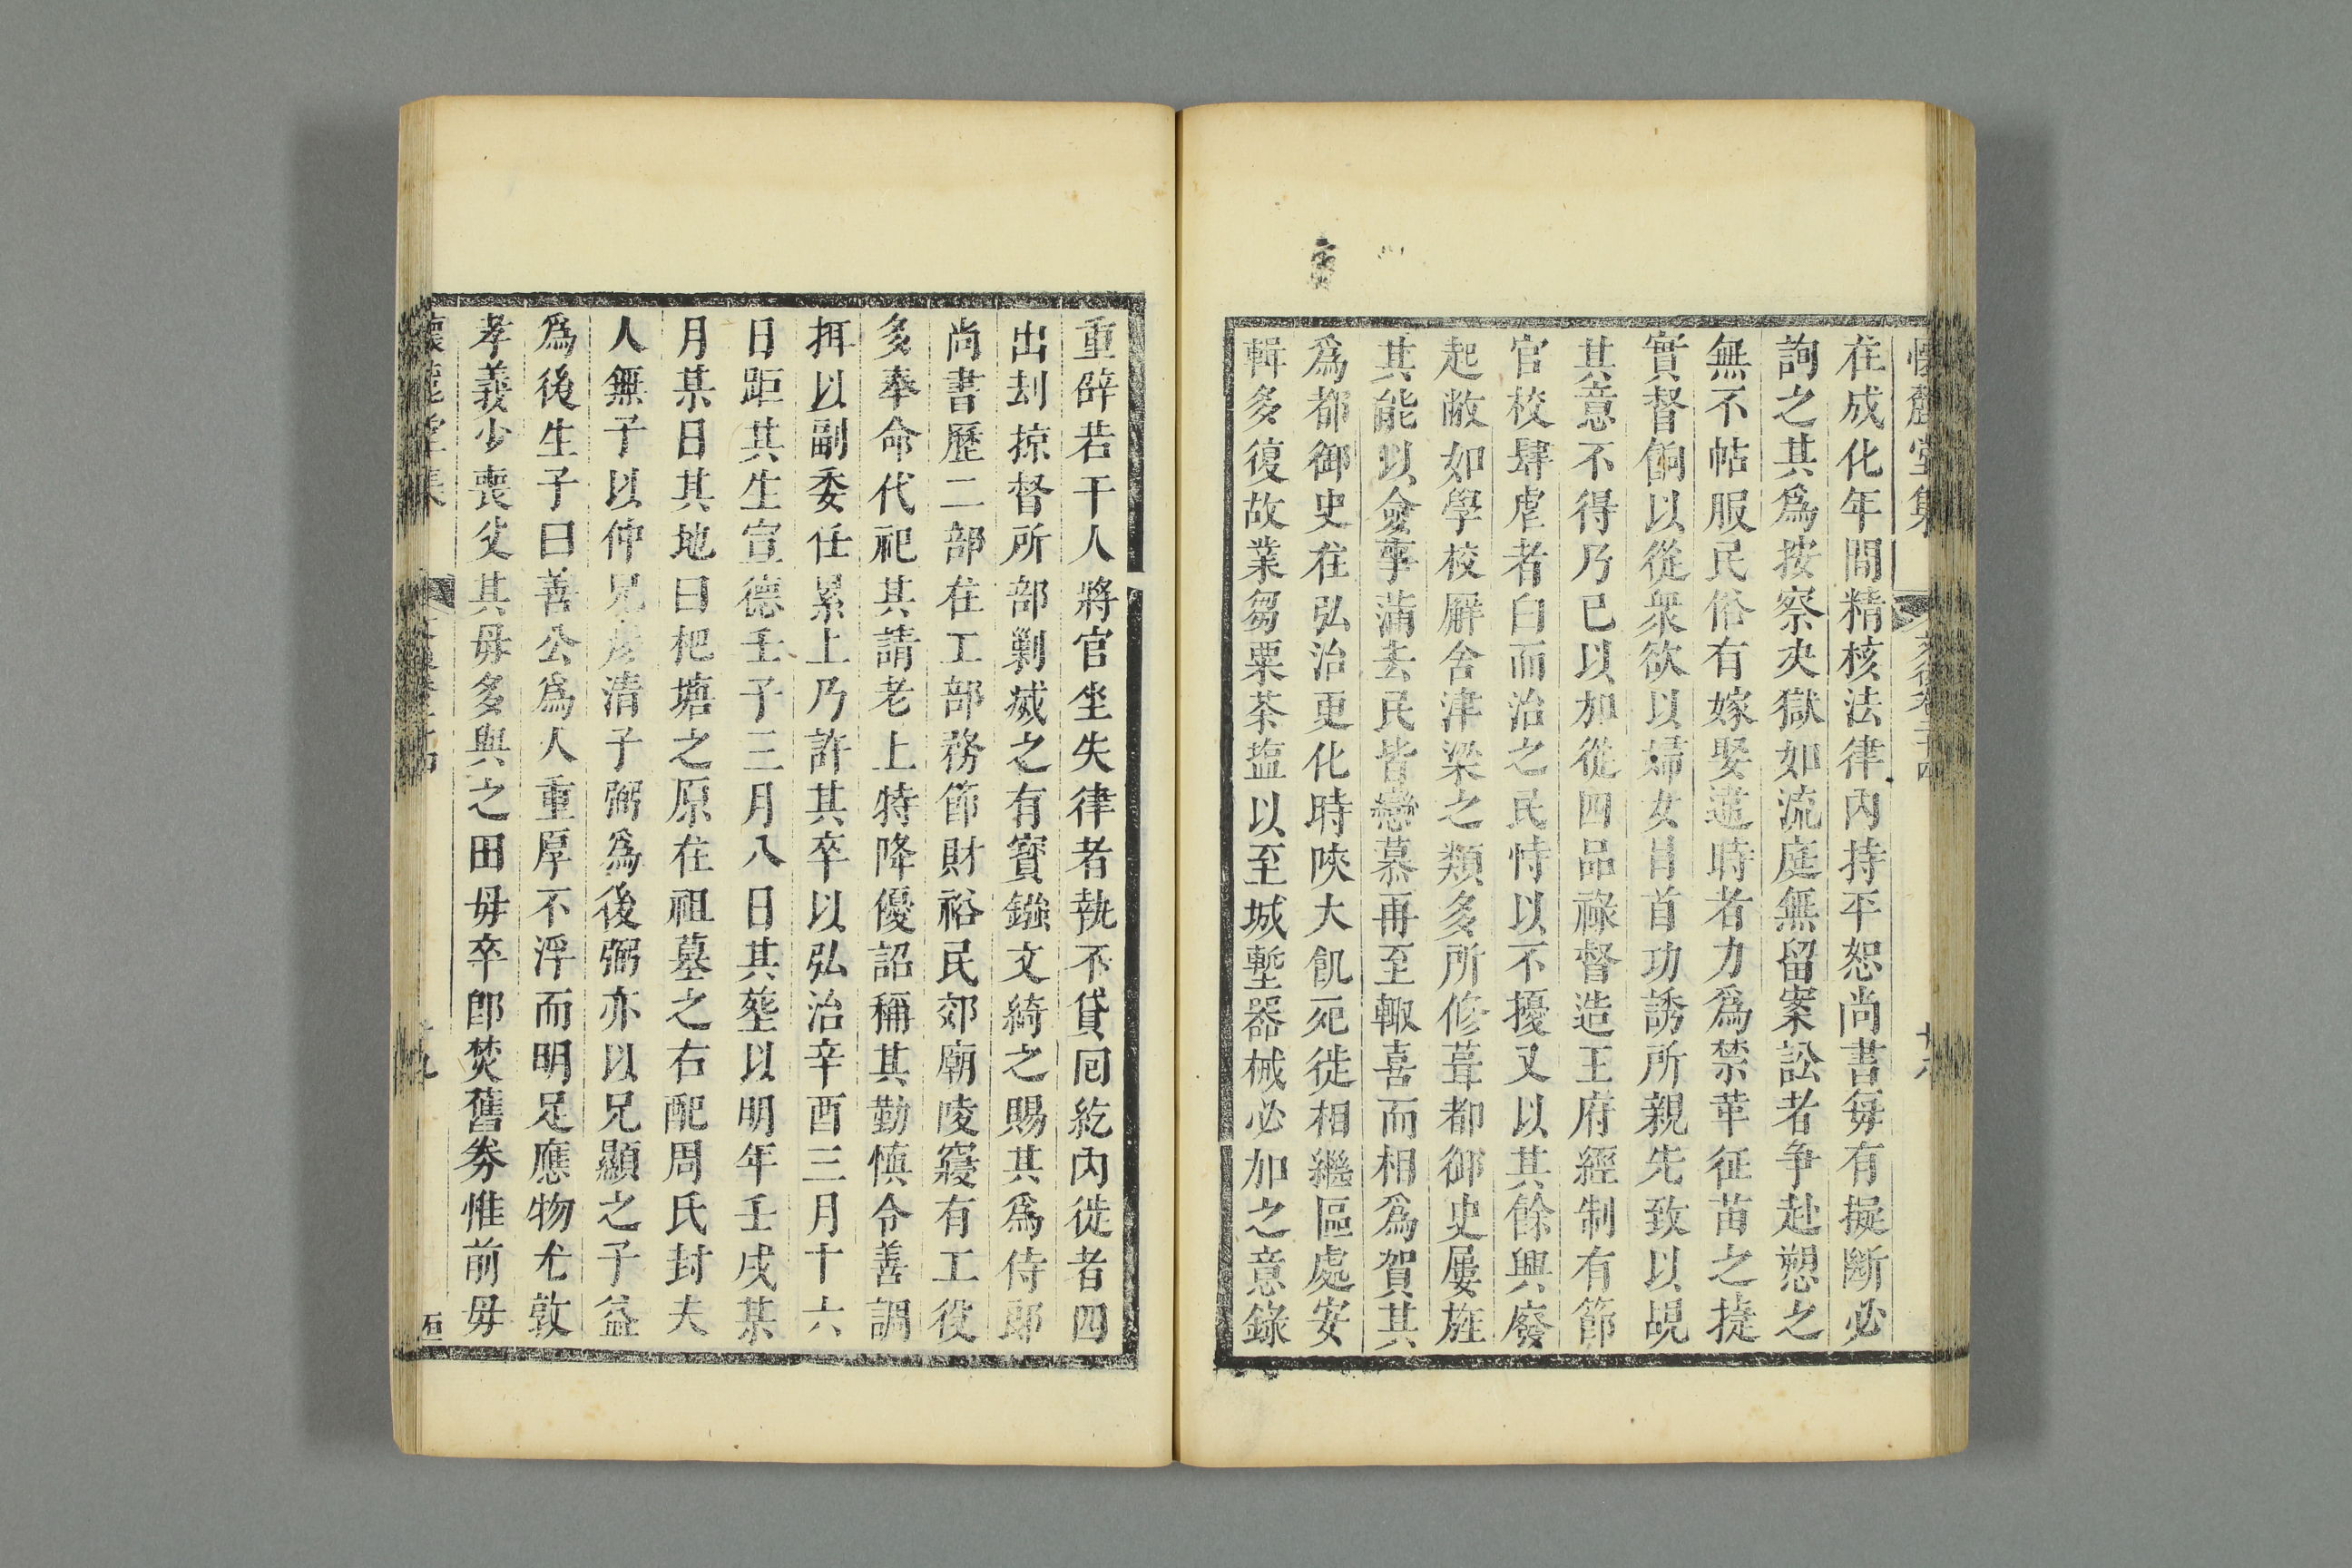 懷麓堂集 文後卷二十四 十八
在成化年間精核法律內持平恕尚書每有擬斷必
詢之其為按察夬獄如流庭無留案訟者争赴愬之
無不帖服民俗有嫁娶違時者力為禁革征苗之捷
實督餉以從衆欲以婦女冒首功誘所親先致以覘
其意不得乃已以加從四品祿督造王府經制有節
官校肆虐者白而治之民恃以不擾又以其餘興廢
起敝如學校廨舍津梁之類多所修葺都御史屢旌
其能以僉事滿去民皆戀慕再至輙喜而相為賀其
為都御史在弘治更化時陜大飢死徙相繼區處安
輯多復故業芻粟茶塩以至城塹器械必加之意錄
重辟若干人將官坐失律者執不貸囘紇內徙者四
出刦掠督所部剿滅之有寳鏹文綺之賜其為侍郎
尚書歷二部在工部務節財裕民郊廟陵寢有工役
多奉命代祀其請老上特降優詔稱其勤慎令善調
攝以副委任累上乃許其卒以弘治辛酉三月十六
日距其生宣德壬子三月八日其塟以明年壬戌某
月某日其地曰杷塘之原在祖墓之右配周氏封夫
人無子以仲兄彦清子弼為後弼亦以兄顯之子益
為後生子曰善公為人重厚不浮而明足應物尤敦
孝義少喪父其毋多與之田毋卒即焚舊券惟前毋
懷麓堂集 十九